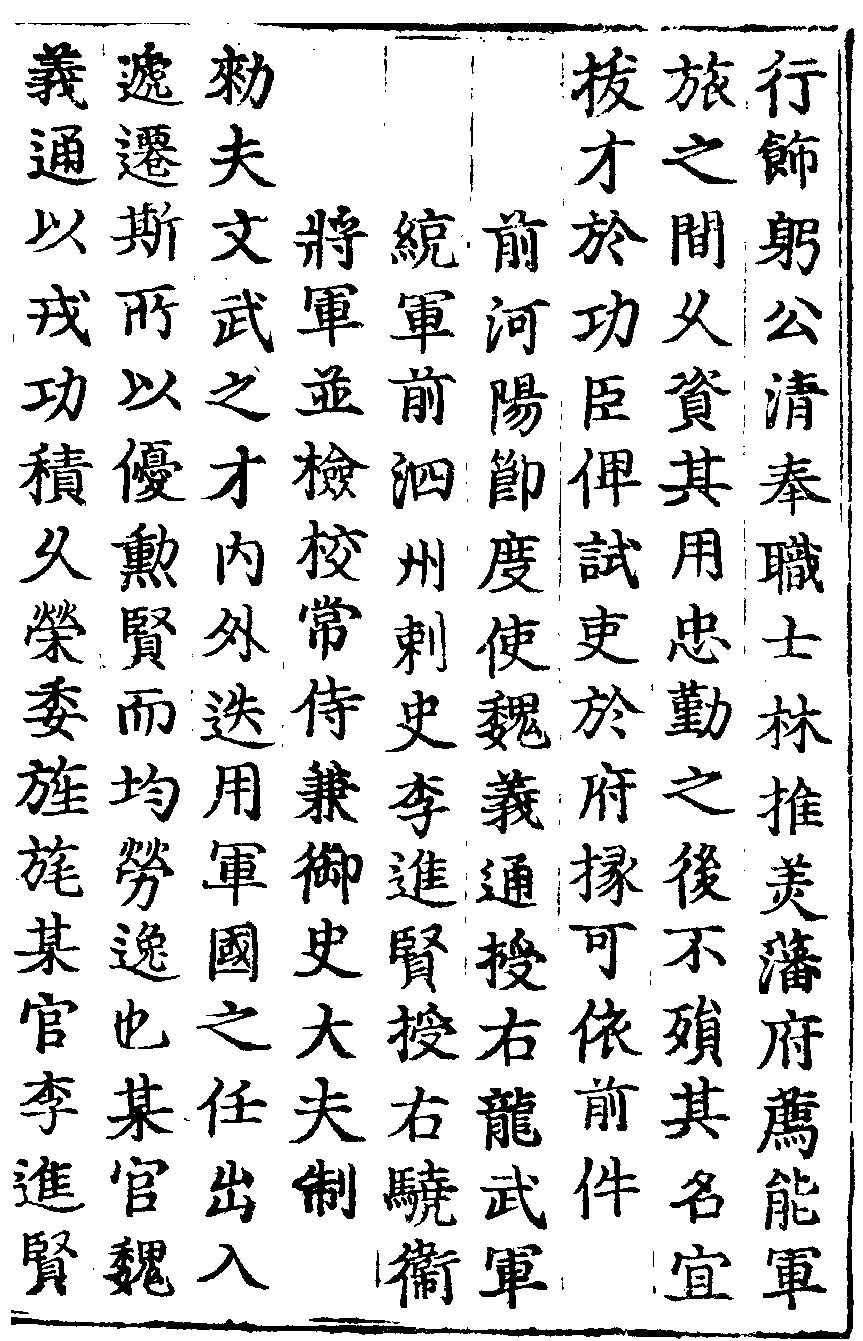 行飾躬公清奉職士林推美藩府薦能軍
旅之間久資其用忠勤之後不殞其名宜
拔才於功臣俾試吏於府掾可依前件
前河陽節度使魏義通授右龍武軍
統軍前泗州刺史李進賢授右驍衛
將軍並檢校常侍兼御史大夫制
勑夫文武之才內外迭用軍國之任出入
遞遷斯所以優勲賢而均勞逸也某官魏
義通以戎功積久榮委旌旄某官李進賢